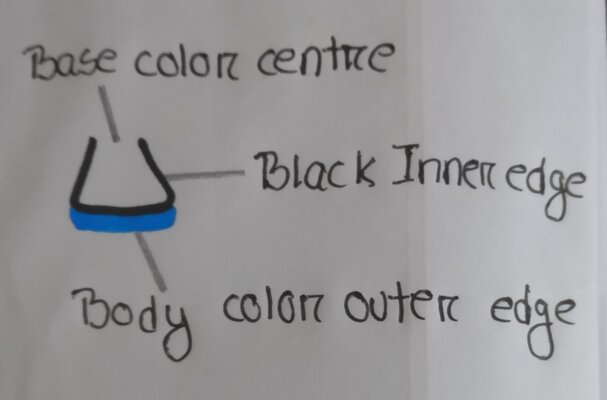 Base color centre
Black Inner edge
Body color outer edge